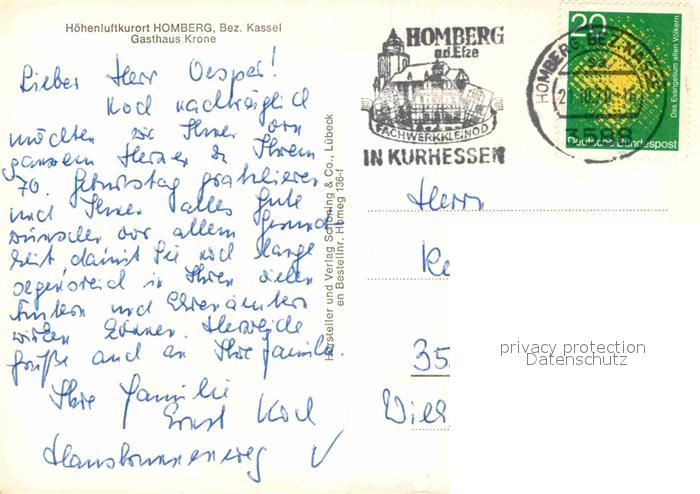 Höhenluftkurort HOMBERG, Bez. Kassel
Gasthaus Krone
Lieber Herr Oesper!
Noch nachträglich
möchten wir Ihnen von
ganzem Herzen zu Ihrem
70. Geburtstag gratulieren
und Ihnen alles Gute
wünschen vor allem Gesund-
heit damit Sie noch lange
segensreich in Ihren vielen
Ämtern und Ehrenämtern
wirken können. Herzliche
Grüße auch an Ihre Familie.
Ihre Familie
Ernst Koch
Hersteller und Verlag Schöning & Co., Lübeck
en Bestellnr. Hbmeg 136-f
HOMBERG
a.d.Efze
FACHWERKKLEINOD
IN KURHESSEN
HOMBERG, BEZ. KASSEL
3588
20
Das Evangelium allen Völkern
Deutsche Bundespost
Herrn
Ke
35
privacy protection
Datenschutz